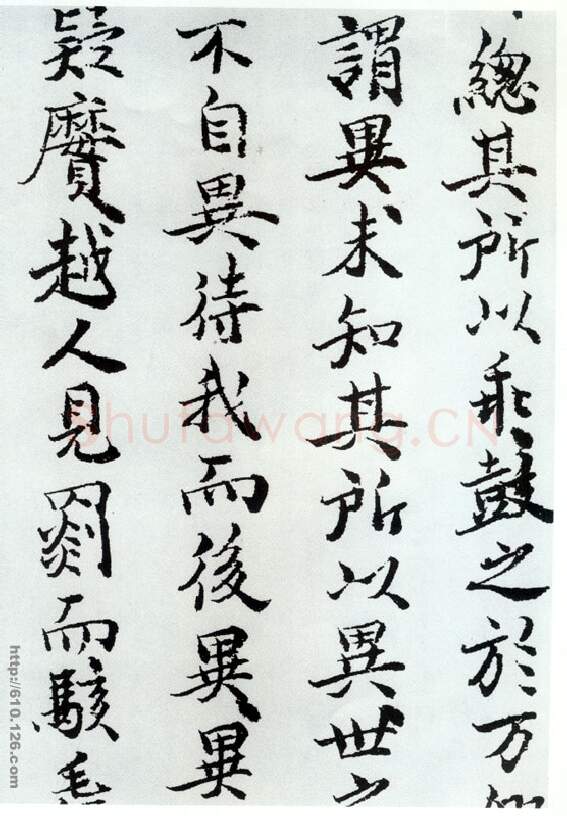 總其所以乖鼓之於万
謂異未知其所以異世之
不自異待我而後異異
疑黂越人見罽而駭毳
Shufawang.CN
http://610.126.com